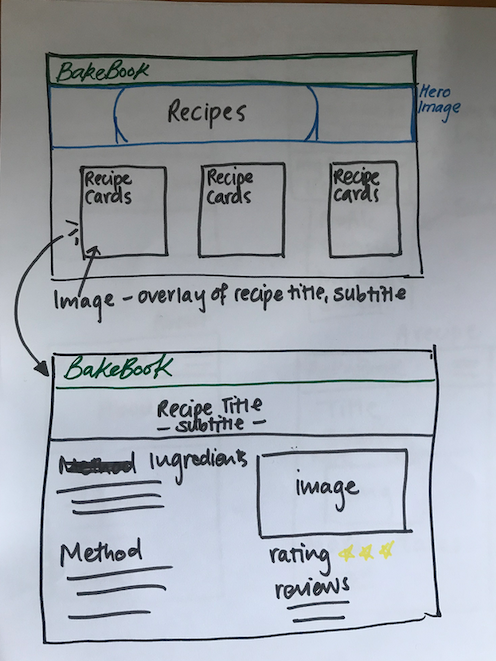 BakeBook
Hero
Image
Recipes
Recipe
Cards
Recipe
Cards
Recipe
Cards
Image - overlay of recipe title, subtitle
BakeBook
Recipe Title
- subtitle -
Method Ingredients
image
Method
rating
reviews